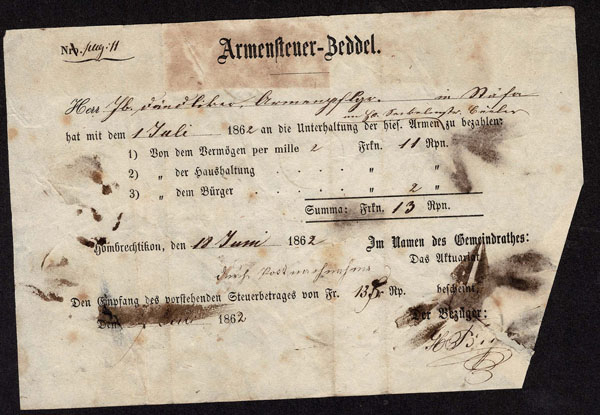 Armensteuer-Zeddel.
Herr Jb. Dändliker, Armenpflgr. in Stäfa
hat mit dem 1 Juli 1862 an die Unterhaltung der hies. Armen zu bezahlen:
1) Von dem Vermögen per mille 2 Frkn. 11 Rpn.
2) „ der Haushaltung . . . . „ „
3) „ dem Bürger . . . . . „ 2 „
Summa: Frkn. 13 Rpn.
Hombrechtikon, den 18 Juni 1862 Im Namen des Gemeindrathes:
Das Aktuariat
Den Empfang des vorstehenden Steuerbetrages von Fr. 13 Rp. bescheint,
Den 1862 Der Bezüger: